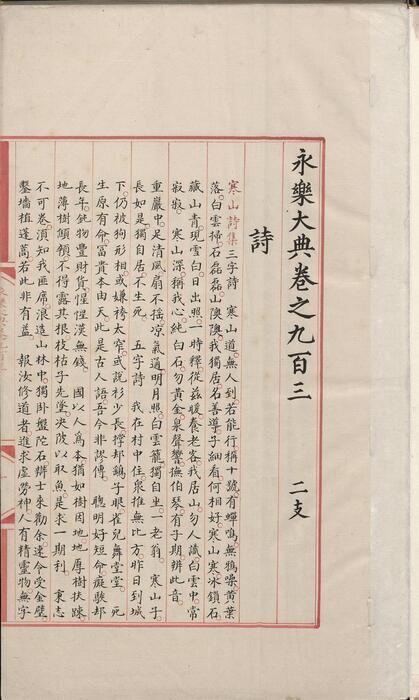 永樂大典卷之九百三 二支
詩
寒山詩集三字詩 寒山道無人到若能行稱十號有蟬鳴無鴉噪黃葉
落白雲掃石磊磊山隩隩我獨居名善導子細看何相好寒山寒冰鎖石
藏山青現雪白日出照一時釋從茲暖養老客我居山勿人識白雲中常
寂寂 寒山深稱我心純白石勿黃金泉聲響撫伯琴有子期辨此音
重巖中足清風扇不搖凉氣通明月照白雲籠獨自坐一老翁 寒山子
長如是獨自居不生死 五字詩 我在村中住衆推無比方昨日到城
下仍被狗形相或嫌袴太窄或說衫少長撑却鷂子眼雀兒舞堂堂 死
生原有命富貴本由天此是古人語吾今非謬傳 聰明好短命癡騃却
長年鈍物豐財貨惺惺漢無錢 國以人爲本猶如樹因地地厚樹扶踈
地薄樹不得露其根枝枯子先墜决陂以取魚是求一期利 秉志
不可卷須知我匪席浪造山林中獨卧盤陀石辯士來勸余速令受金璧
鑿墻植蓬蒿若此非有益 報汝修道者進求虛勞神人有精靈物無字